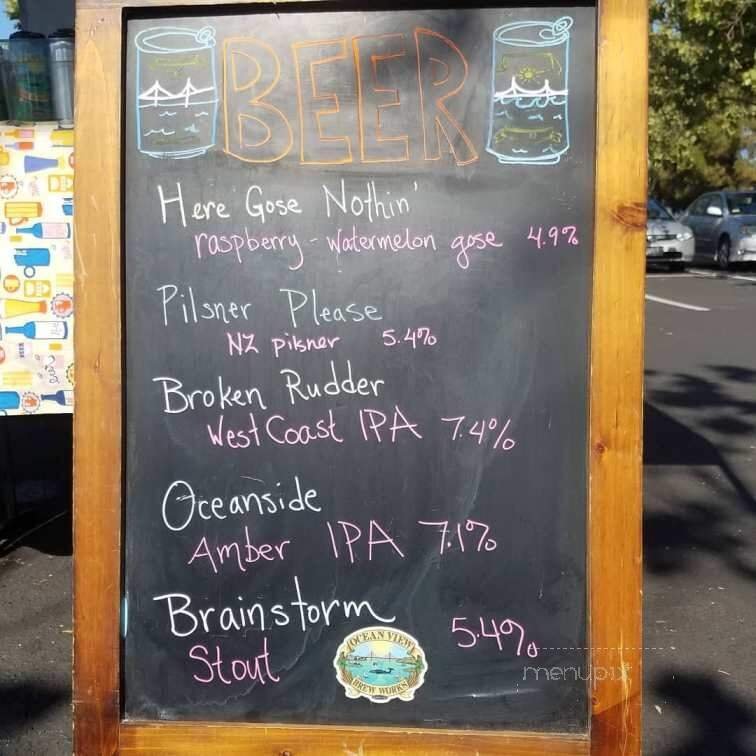 BEER
Here Gose Nothin'
raspberry - watermelon gose 4.9%
Pilsner Please
NZ pilsner 5.4%
Broken Rudder
West Coast IPA 7.4%
Oceanside
Amber IPA 7.1%
Brainstorm
Stout 5.4%
OCEAN VIEW
BREW WORKS
menupix